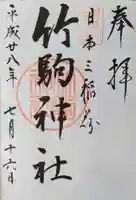 奉拝
日本三稲荷
竹駒神社
平成廿八年 七月十六日